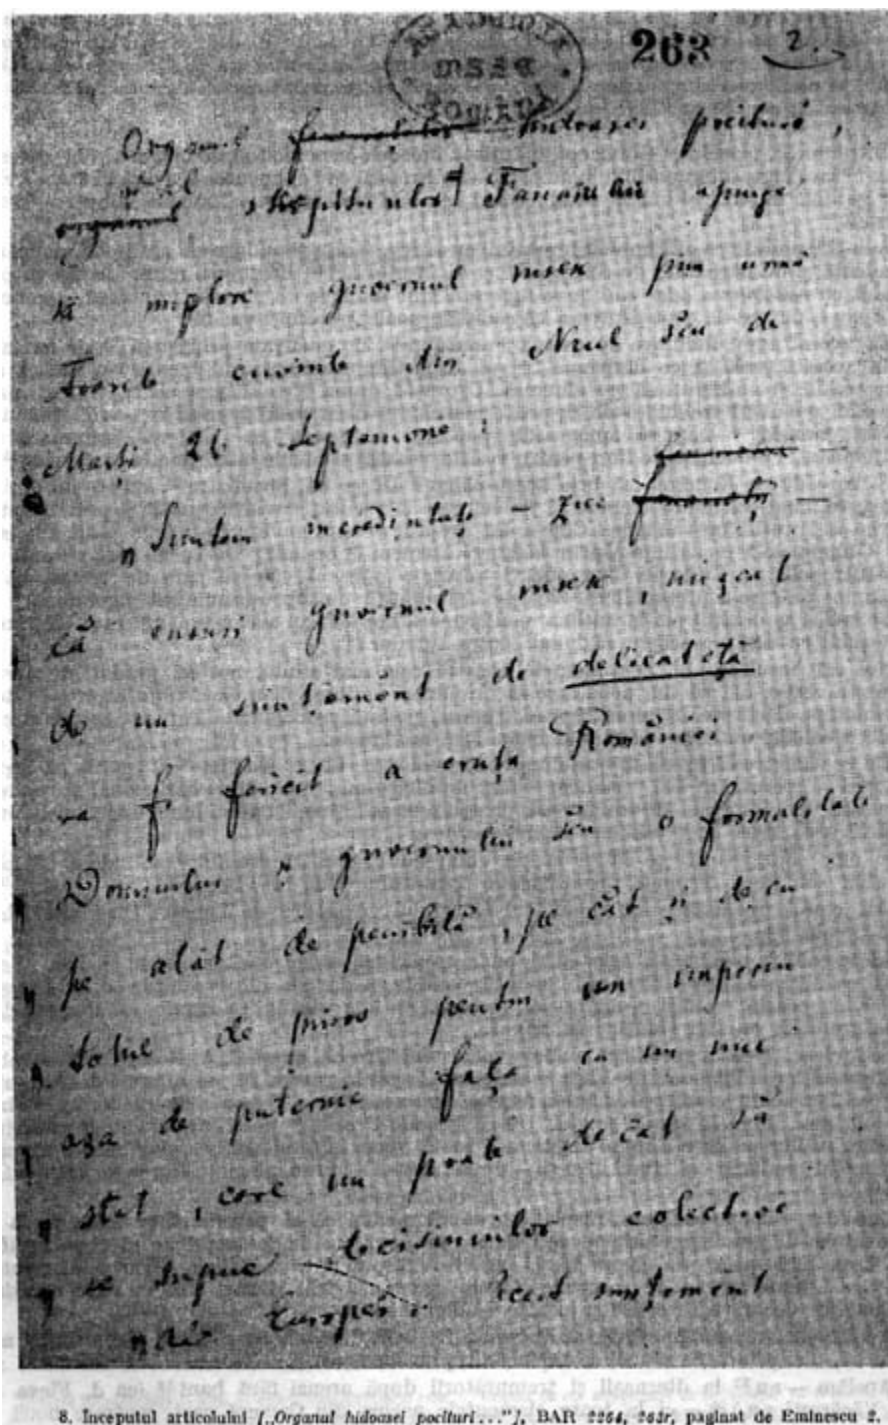 263 2.
Organul hidoasei pocituri,
și al stârpiturilor Fanarului ajunge
să implore guvernul rusesc prin următoarele cuvinte din Nrul său de
Marți 26 Septemvrie:
„Suntem incredințați – zice –
că însuși guvernul rusesc, mișcat
de un simțimânt de delicateță
va fi fericit a cruța României
Domnului și guvernului său o formalitate
„pe atât de penibilă, pe cât și de cu
„totul de prisos pentru un imperiu
așa de puternic față cu un mic
„stat, care nu poate decât să
„se supue decisiunilor colective
„ale Europei. Acest simțimânt
8. Începutul articolului [„Organul hidoasei pocituri..."], BAR 2264, 263r, paginat de Eminescu 2.